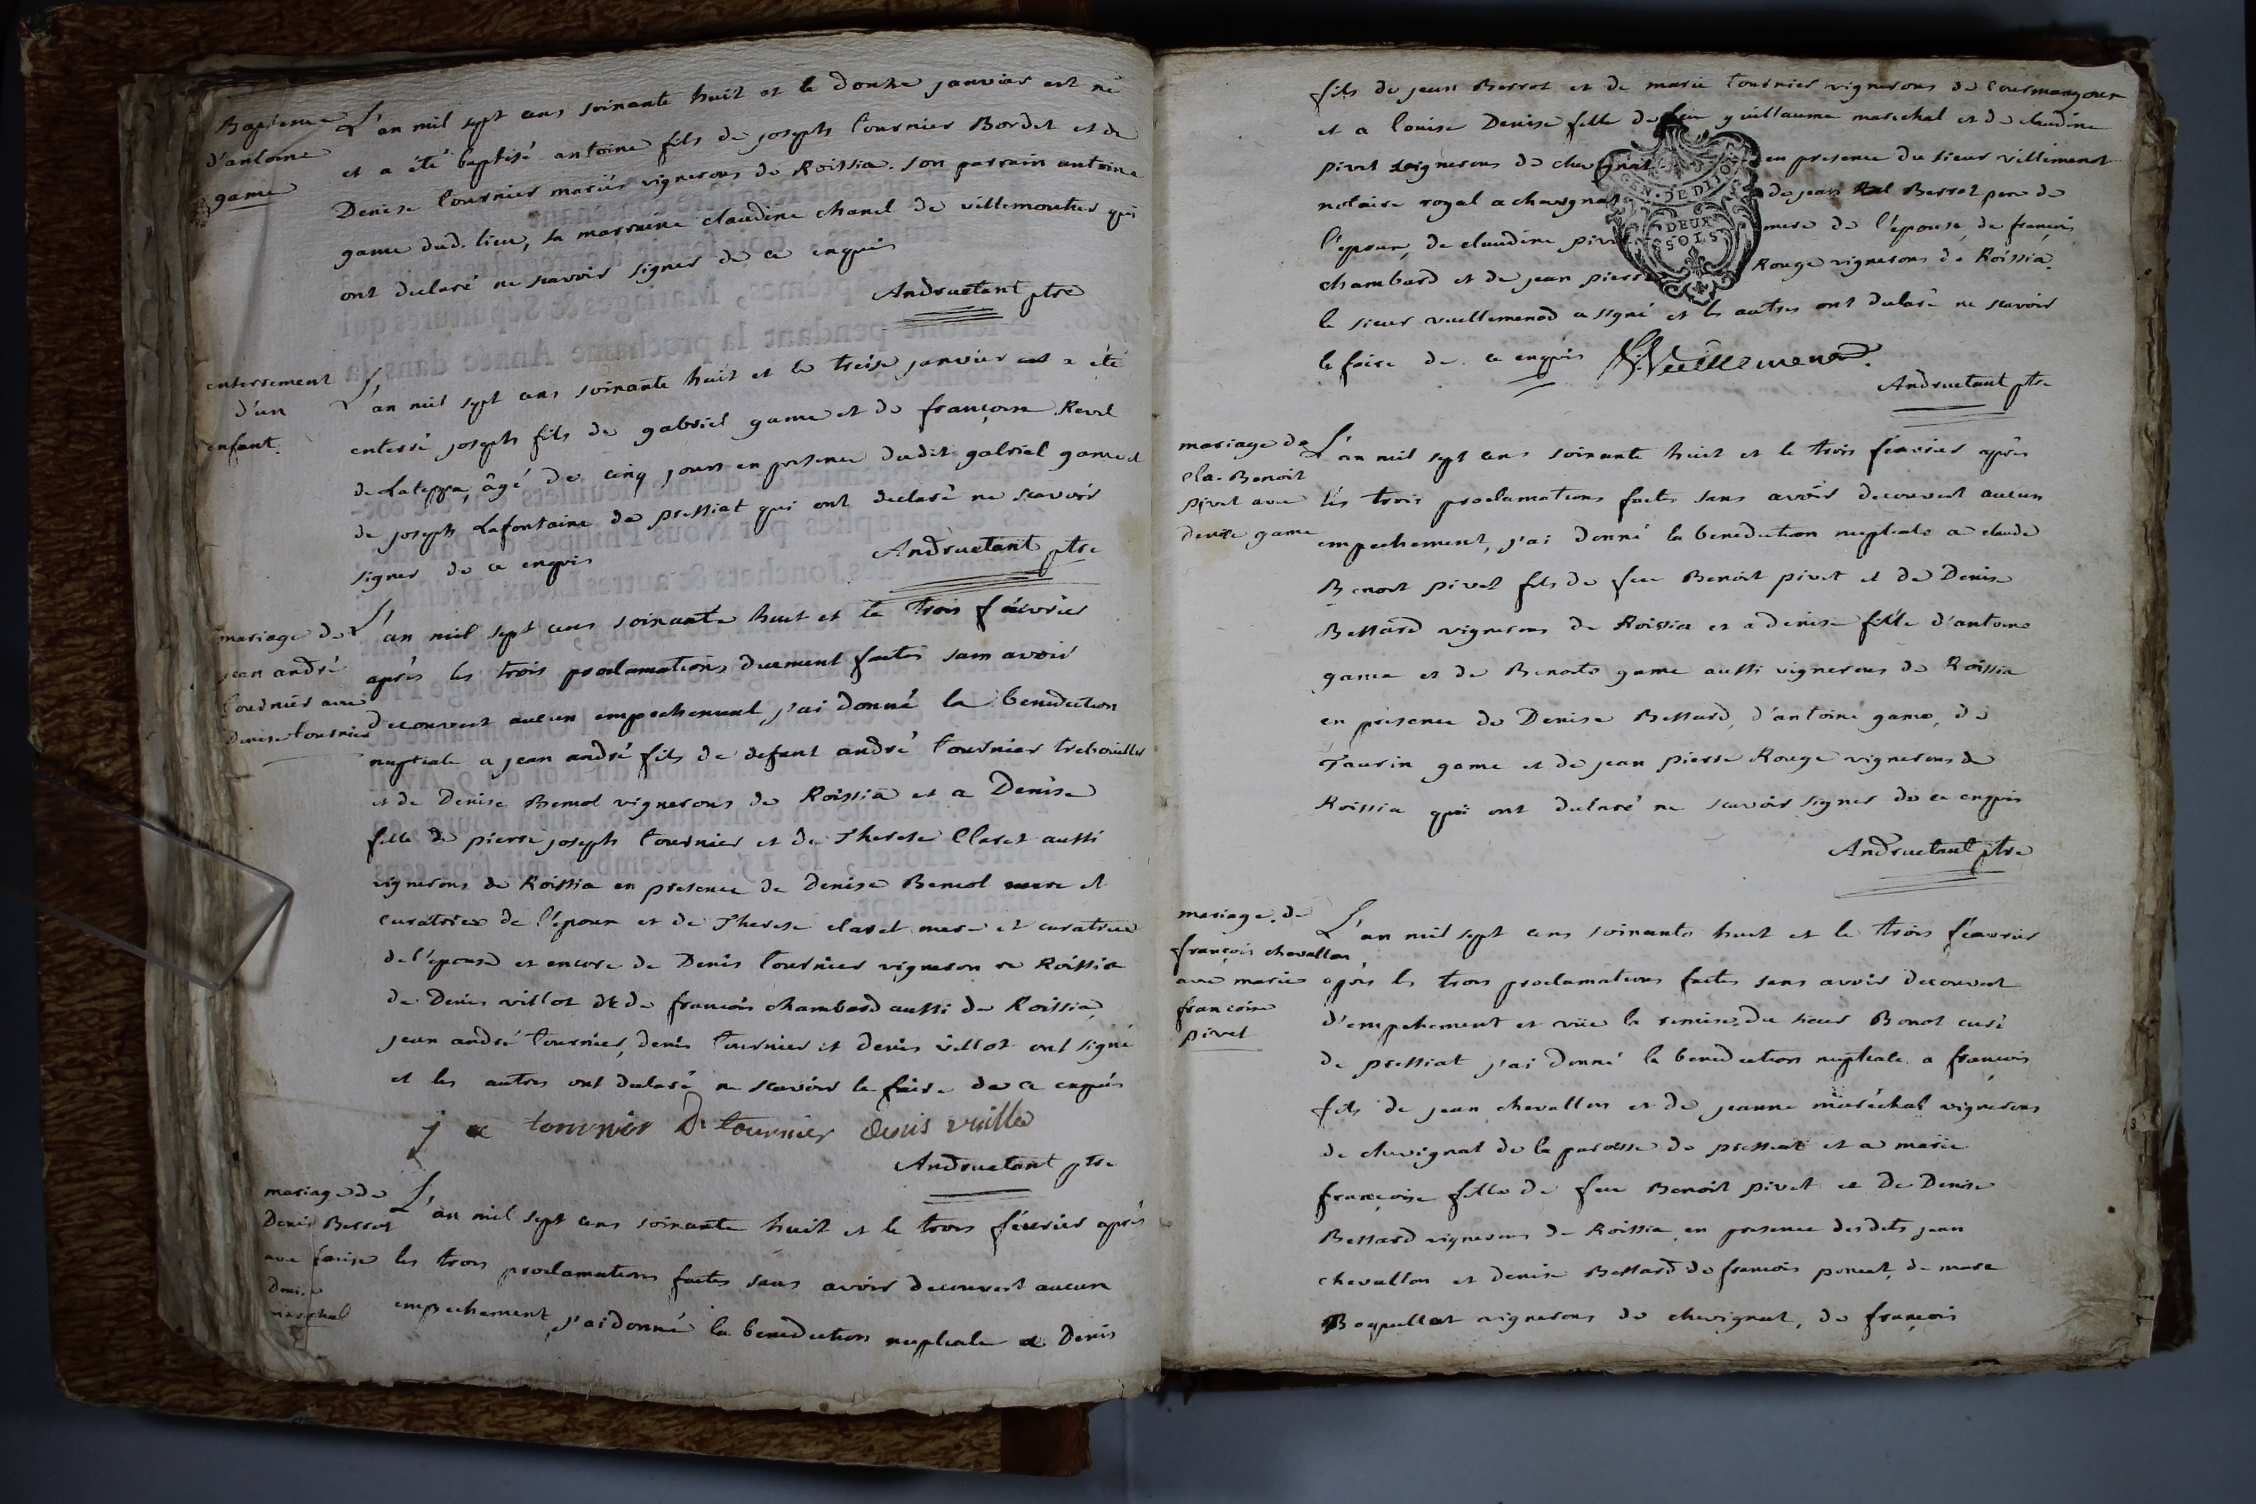 Bapteme
d'antoine
game
L'an mil sept cens soixante huit et le douze janvier est né
et a été baptisé antoine fils de joseph tournier Bordet et de
Denise tournier mariés vignerons de Roissia. son parrain antoine
game dud. lieu, sa marraine claudine chanel de villemoutier qui
ont declaré ne scavoir signer de ce enquis
Andruetant ptre
enterrement
d'un
enfant.
L'an mil sept cens soixante huit et le treise janvier a été
enterré joseph fils de gabriel game et de françoise Revel
de âgé de cinq jours en presence dudit gabriel game et
de joseph Lafontaine de pressiat qui ont declaré ne scavoir
signer de ce enquis
Andruetant ptre
mariage de
jean andré
tournier avec
Denise tournier
L'an mil sept cens soixante huit et le trois février
après les trois proclamations duement faites sans avoir
decouvert aucun empechement, j'ai donné la benediction
nuptiale a jean andré fils de defunt andré tournier
et de Denise Bemol vignerons de Roissia et a Denise
fille de pierre joseph tournier et de Therese Claret aussi
vignerons de Roissia en presence de Denise Bemol mere et
curatrice de l'époux et de Therese claret mere et curatrice
de l'épouse et encore de Denis tournier vigneron de Roissia
de Denis villot et de françois chambard aussi de Roissia,
jean andré tournier, denis tournier et denis villot ont signé
et les autres ont declaré ne scavoir le faire de ce enquis
j a tournier D tournier denis vuille
Andruetant ptre
mariage de
Denis Berrot
avec louise
Denise
marechal
L'an mil sept cens soixante huit et le trois février après
les trois proclamations faites sans avoir decouvert aucun
empechement, j'ai donné la benediction nuptiale a Denis
fils de jean Berrot et de marie tournier vignerons de Courmangoux
et a louise Denise fille de feu guillaume marechal et de claudine
pivet vignerons de chevignat en presence du sieur villemenot
notaire royal a chevignat de jean Berrot pere de
l'époux, de claudine pivet mere de l'épouse, de françois
chambard et de jean pierre Rouge vignerons de Roissia.
le sieur vuillemenod a signé et les autres ont declaré ne scavoir
le faire de ce enquis Vuillemenod.
Andruetant ptre
GEN. DE DIJON
DEUX
SOLS
mariage de
cla. Benoit
pivet avec
denise game
L'an mil sept cens soixante huit et le trois février après
les trois proclamations faites sans avoir decouvert aucun
empechement, j'ai donné la benediction nuptiale a claude
Benoit pivet fils de feu Benoit pivet et de Denise
Bettard vignerons de Roissia et a denise fille d'antoine
game et de Benoite game aussi vignerons de Roissia
en presence de Denise Bettard, d'antoine game, de
Taurin game et de jean pierre Rouge vignerons de
Roissia qui ont declaré ne scavoir signer de ce enquis
Andruetant ptre
mariage de
françois chevallon
avec marie
françoise
pivet
L'an mil sept cens soixante huit et le trois février
après les trois proclamations faites sans avoir decouvert
d'empechement et vüe la remise du sieur Bonot curé
de pressiat j'ai donné la benediction nuptiale a françois
fils de jean chevallon et de jeanne maréchal vignerons
de chevignat de la paroisse de pressiat et a marie
françoise fille de feu Benoit pivet et De Denise
Bettard vignerons de Roissia en presence desdits jean
chevallon et denise Bettard de françois poncet, de marc
vignerons de chevignat, de françois